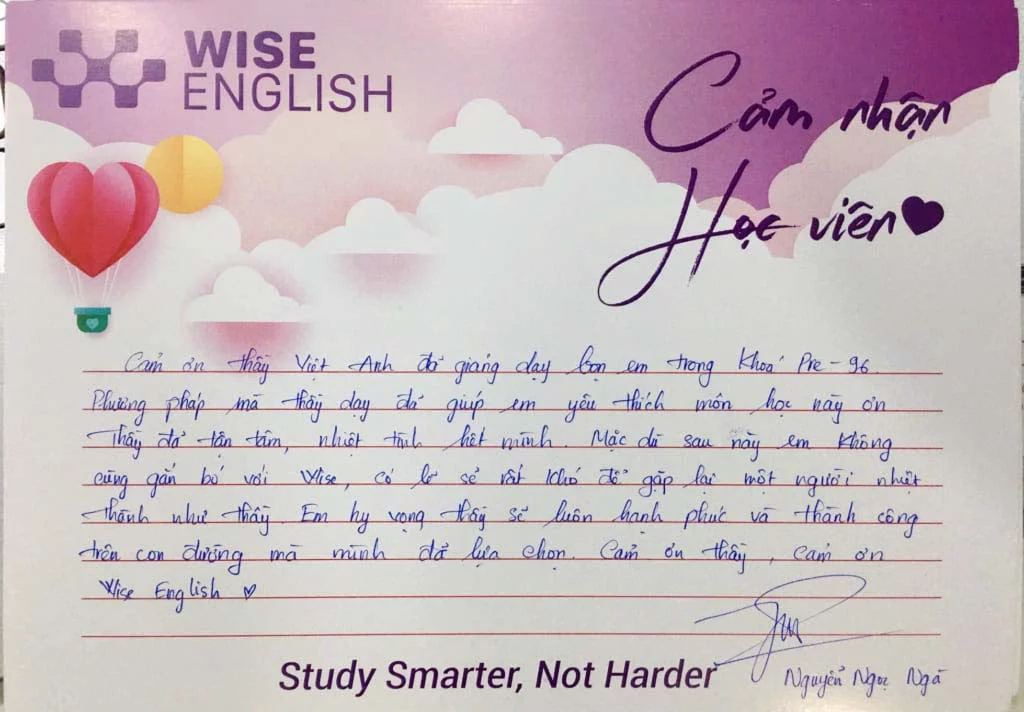 WISE
ENGLISH
Cảm nhận
Học viên
Cảm ơn thầy Việt Anh đã giảng dạy bọn em trong khoá Pre-96.
Phương pháp mà thầy dạy đã giúp em yêu thích môn học này ơn
Thầy đã tận tâm, nhiệt tình hết mình. Mặc dù sau này em không
cùng gắn bó với Wise, có lẽ sẽ rất khó để gặp lại một người nhiệt
thành như thầy. Em hy vọng thầy sẽ luôn hạnh phúc và thành công
trên con đường mà mình đã lựa chọn. Cảm ơn thầy, cảm ơn
Wise English
Study Smarter, Not Harder
Nguyễn Ngọc Ngà